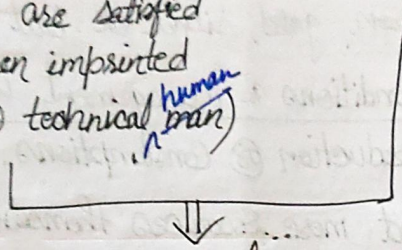 are satisfied
en imprinted
) technical human man)